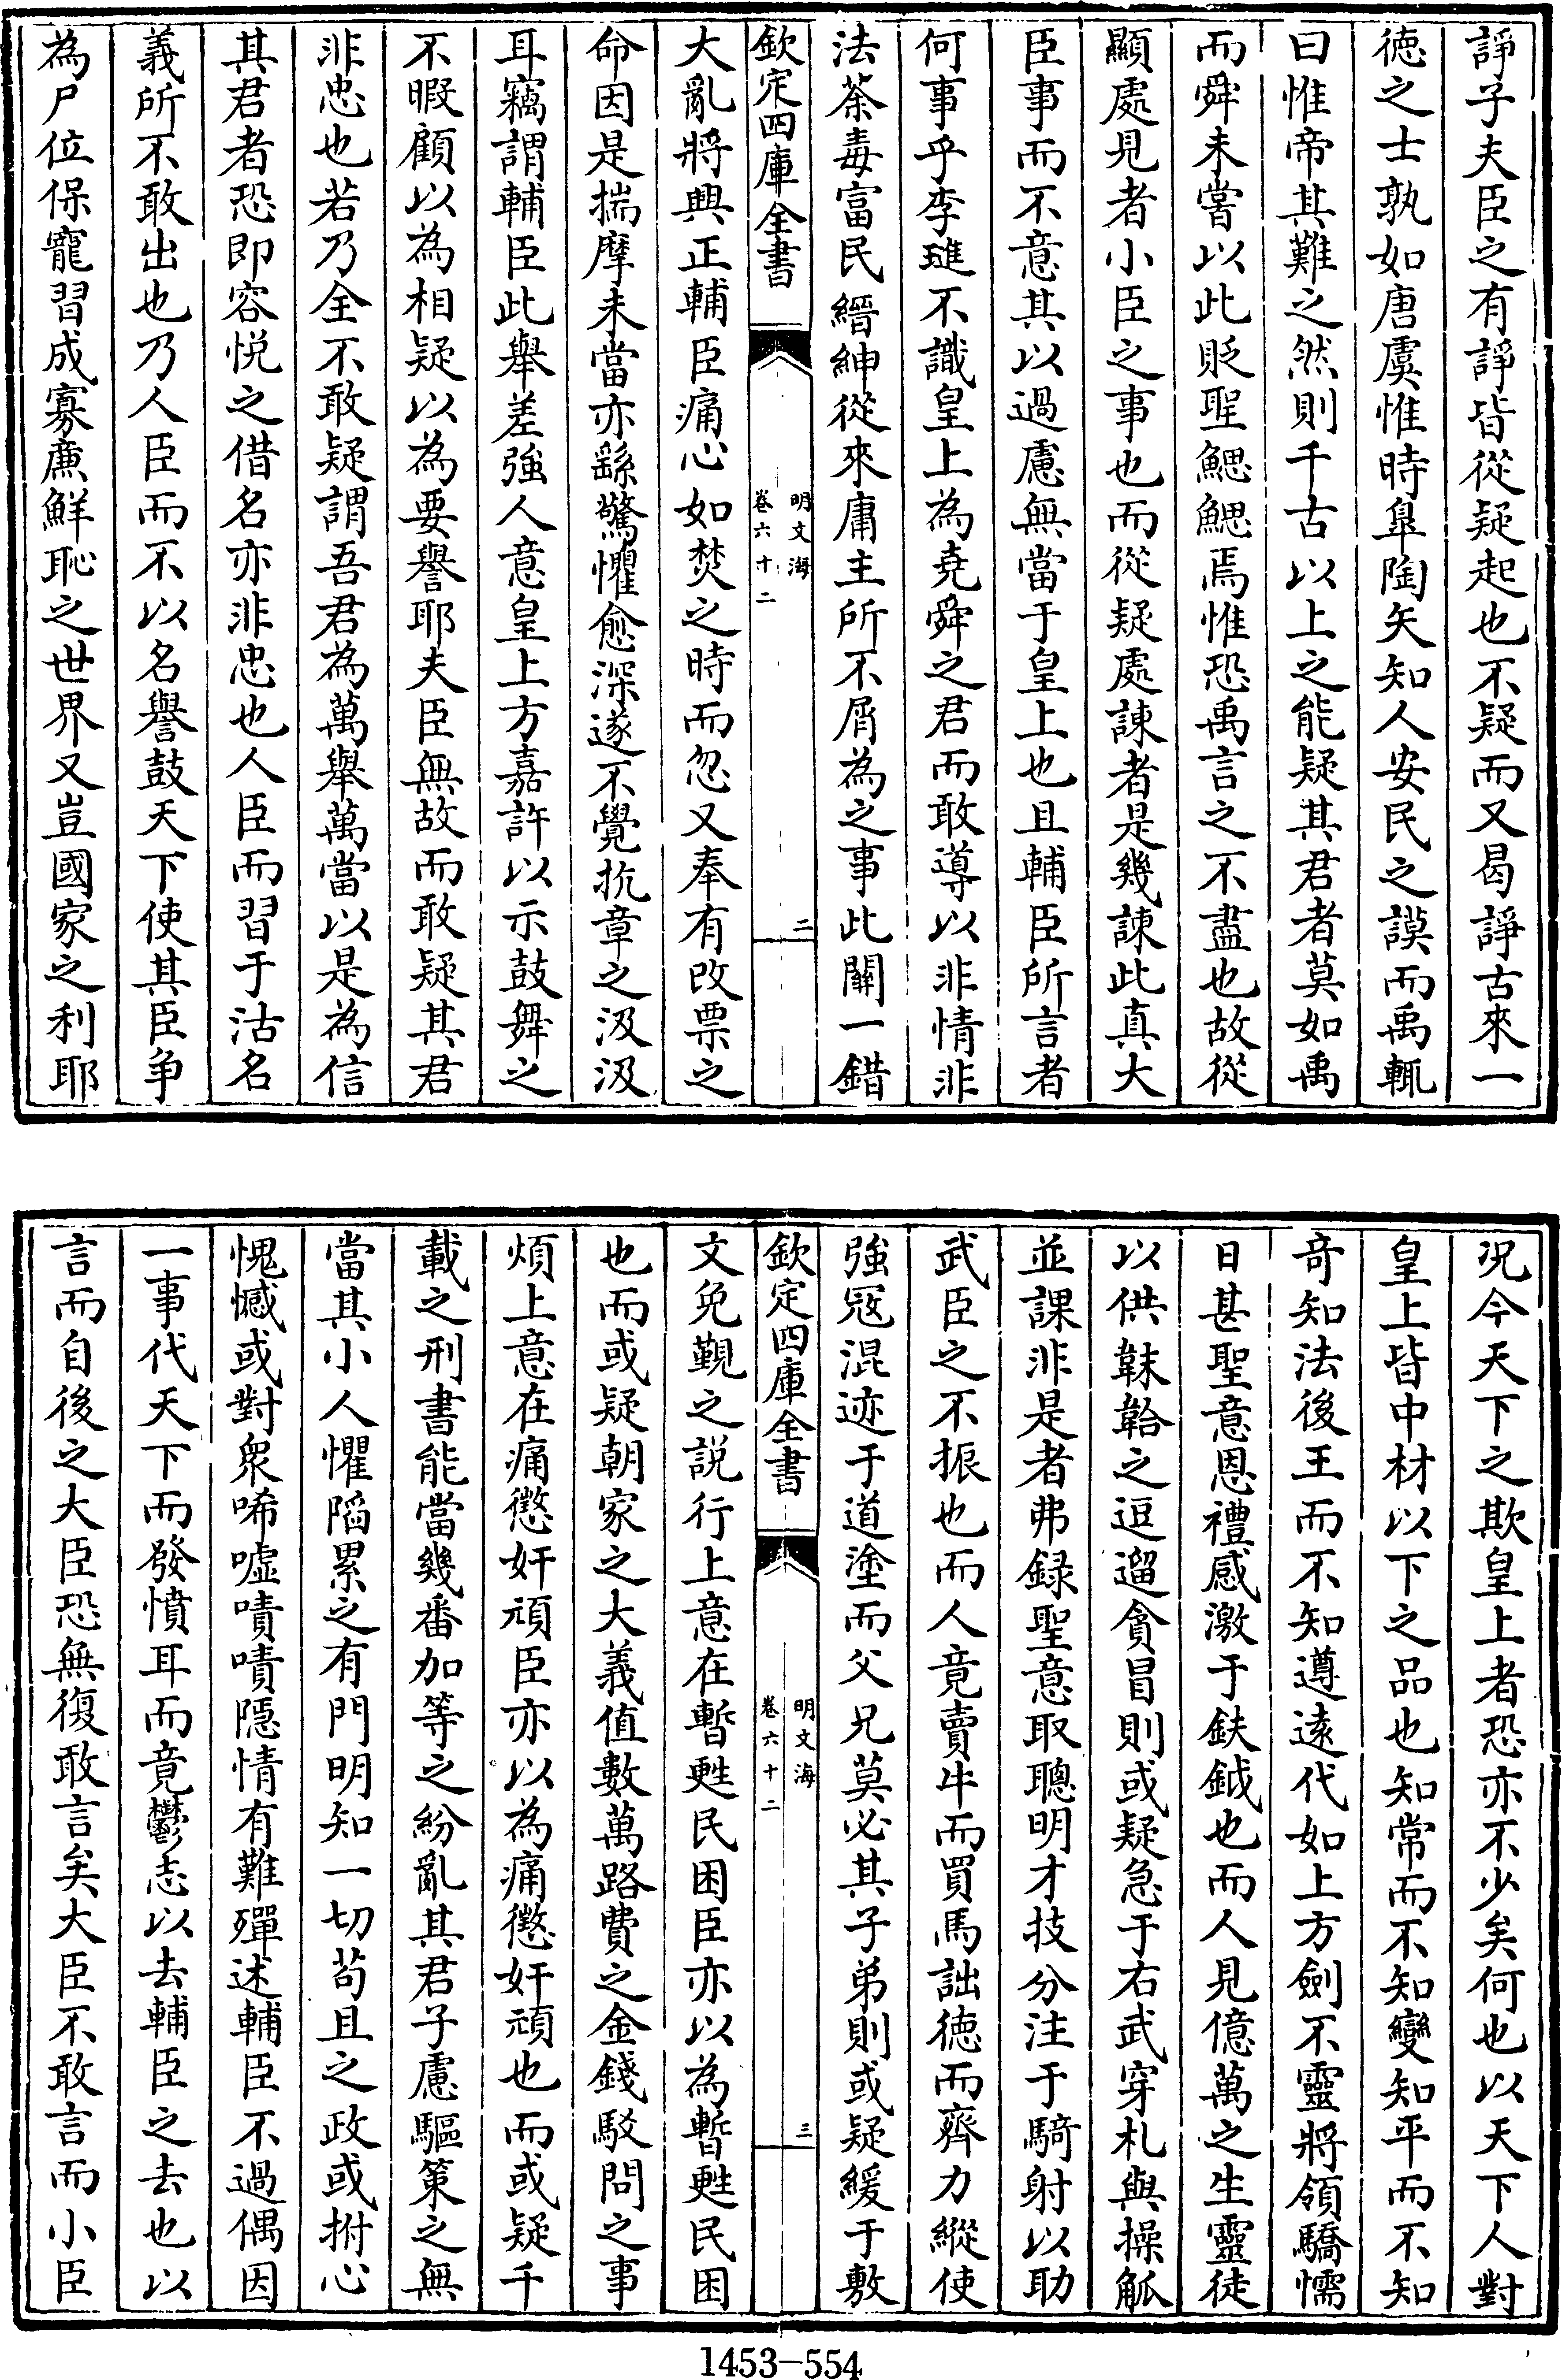 諍子夫臣之有諍皆從疑起也不疑而又曷諍古來一
徳之士孰如唐虞惟時臯陶矢知人安民之謨而禹輒
曰惟帝其難之然則千古以上之能疑其君者莫如禹
而舜未嘗以此貶聖鰓鰓焉惟恐禹言之不盡也故從
顯處見者小臣之事也而從疑處諫者是幾諫此真大
臣事而不意其以過慮無當于皇上也且輔臣所言者
何事乎李璡不識皇上為堯舜之君而敢導以非情非
法荼毒富民縉紳從來庸主所不屑為之事此關一錯
欽定四庫全書
明文海
卷六十二
二
大亂將興正輔臣痛心如焚之時而忽又奉有改票之
命因是揣摩未當亦繇驚懼愈深遂不覺抗章之汲汲
耳竊謂輔臣此舉差強人意皇上方嘉許以示鼓舞之
不暇顧以為相疑以為要譽耶夫臣無故而敢疑其君
非忠也若乃全不敢疑謂吾君為萬舉萬當以是為信
其君者恐即容悦之借名亦非忠也人臣而習于沽名
義所不敢出也乃人臣而不以名譽鼓天下使其臣爭
為尸位保寵習成寡亷鮮恥之世界又豈國家之利耶
况今天下之欺皇上者恐亦不少矣何也以天下人對
皇上皆中材以下之品也知常而不知變知平而不知
竒知法後王而不知遵逺代如上方劍不靈將領驕懦
日甚聖意恩禮感激于鈇鉞也而人見億萬之生靈徒
以供韎韐之逗遛貪冒則或疑急于右武穿札與操觚
並課非是者弗録聖意取聰明才技分注于騎射以助
武臣之不振也而人竟賣牛而買馬詘徳而齊力縱使
強冦混迹于道塗而父兄莫必其子弟則或疑緩于敷
欽定四庫全書
明文海
卷六十二
三
文免覲之説行上意在暫甦民困臣亦以為暫甦民困
也而或疑朝家之大義值數萬路費之金錢駁問之事
煩上意在痛懲奸頑臣亦以為痛懲奸頑也而或疑千
載之刑書能當幾番加等之紛亂其君子慮驅策之無
當其小人懼䧟累之有門明知一切苟且之政或拊心
愧憾或對衆唏嘘嘖嘖隠情有難殫述輔臣不過偶因
一事代天下而發憤耳而竟鬱志以去輔臣之去也以
言而自後之大臣恐無復敢言矣大臣不敢言而小臣
1453—554